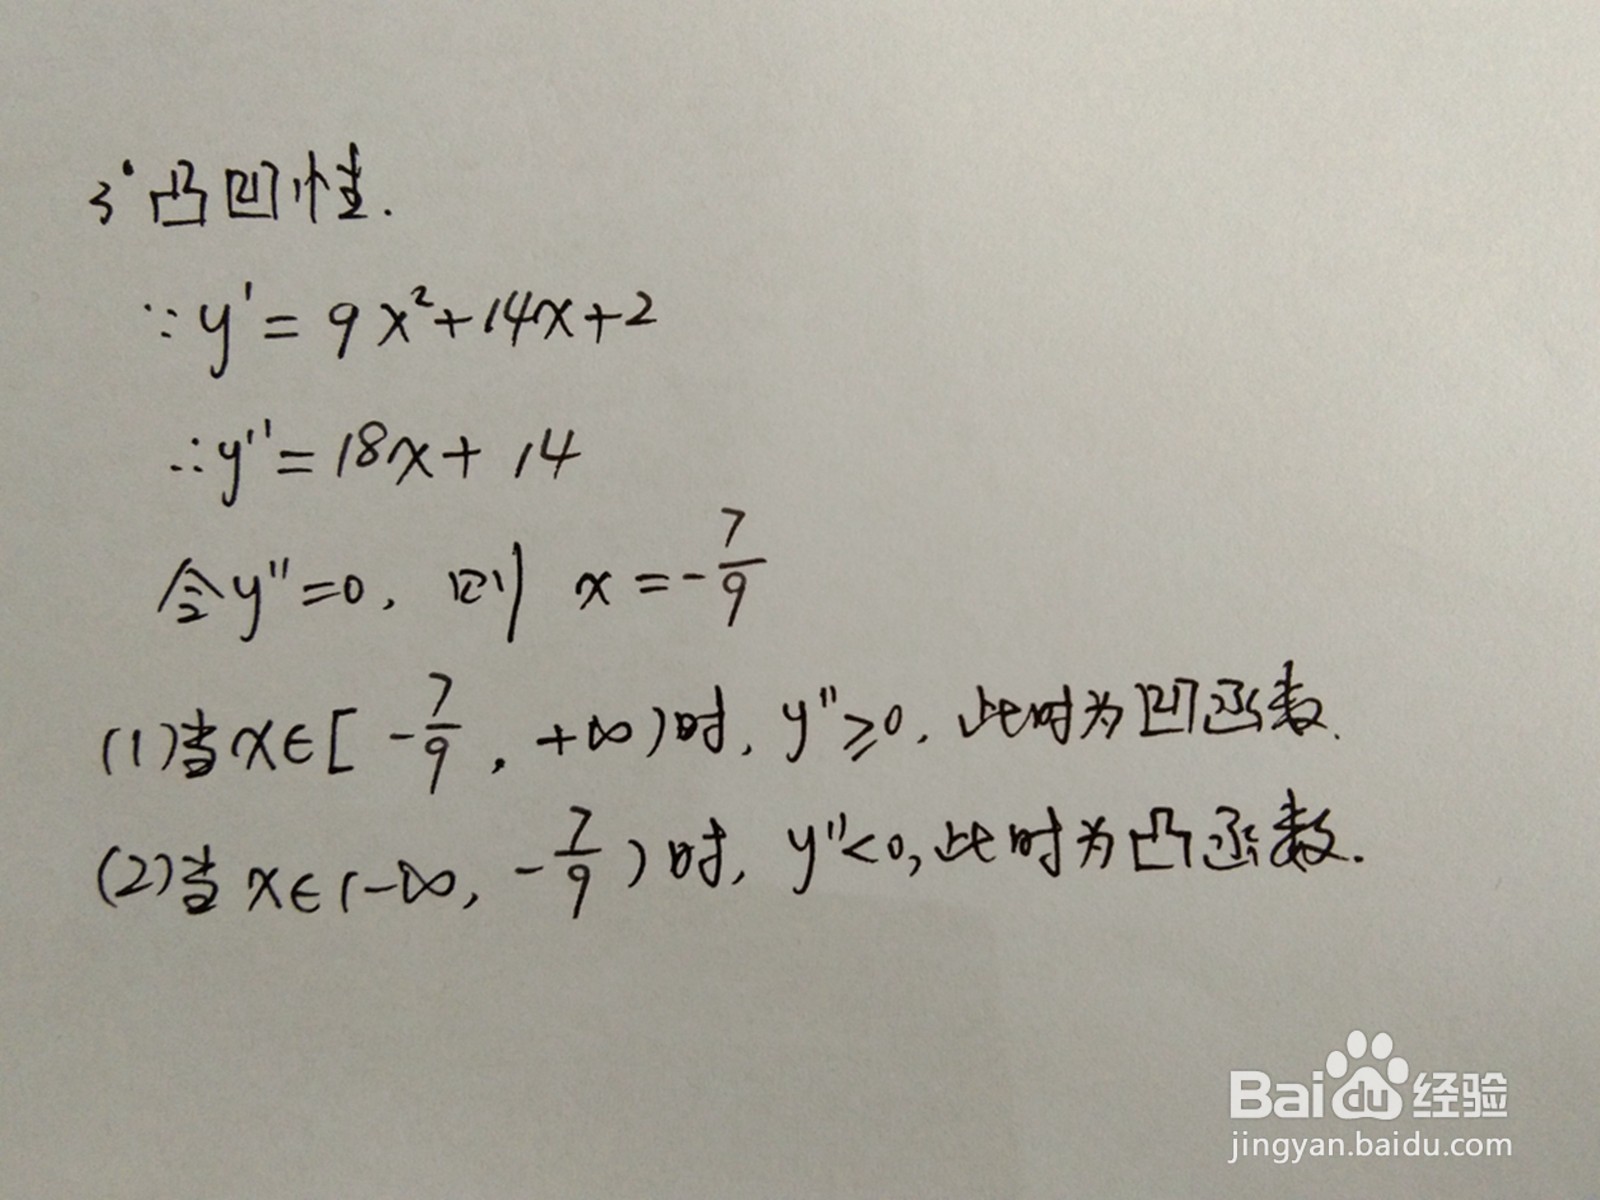 3° 凸凹性.
∵y'=9x²+14x+2
∴y''=18x+14
令y''=0, 则 x=-7/9
(1)当x∈[-7/9, +∞)时, y''≥0, 此时为凹函数.
(2)当x∈(-∞, -7/9)时, y''<0, 此时为凸函数.
Baidu 经验
jingyan.baidu.com